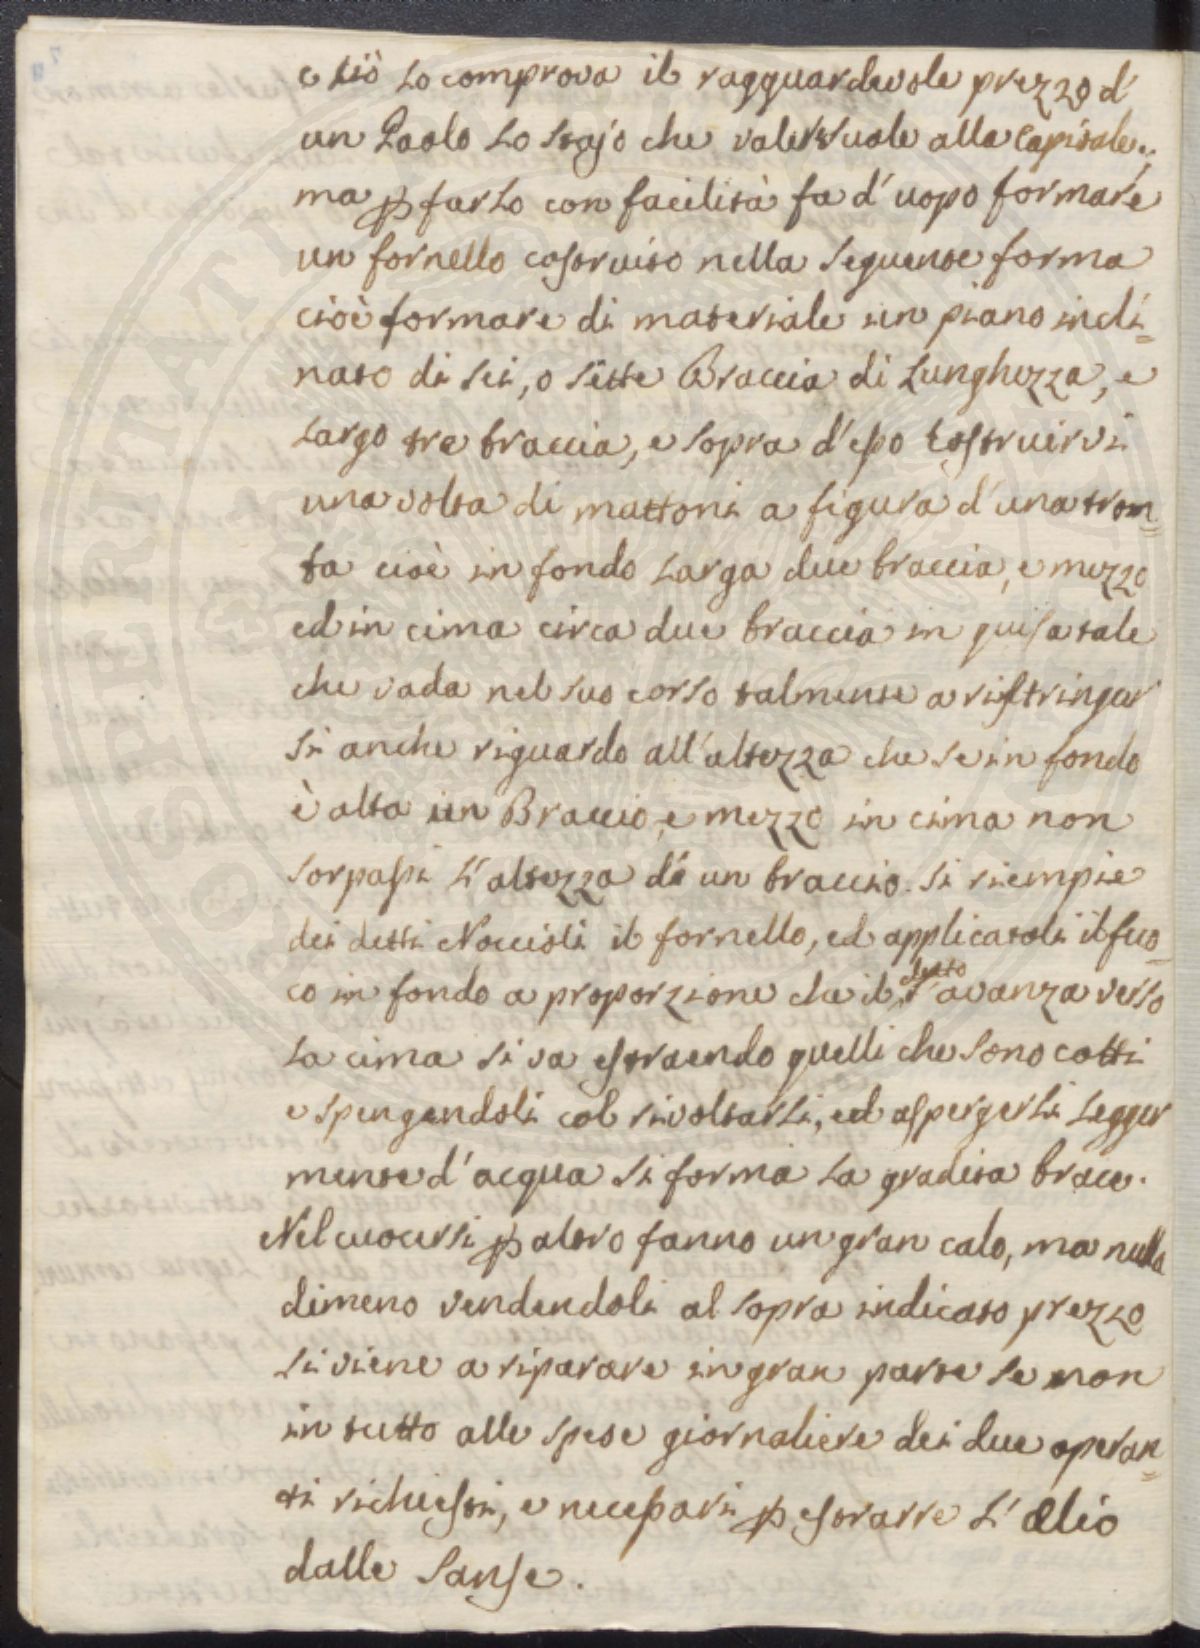 e ciò lo comprova il ragguardevole prezzo d'
un Paolo lo stajo che valer suole alla Capitale.;
ma ꝑ farlo con facilità fa d'uopo formare
un fornello costruito nella seguente forma
cioè formare di materiale un piano incli=
nato di sei, o sette Braccia di Lunghezza, e
largo tre braccia, e sopra d'esso costruirvi
una volta di mattoni a figura d'una trom=
ba cioè in fondo larga due braccia, e mezzo
ed in cima circa due braccia in guisa tale
che vada nel suo corso talmente a ristringer
si anche riguardo all'altezza che se in fondo
è alta un Braccio, e mezzo in cima non
sorpassi l'altezza di un braccio. Si riempie
dei detti Noccioli il fornello, ed applicatoli il fuo=
co in fondo a proporzione che il detto avanza verso
la cima si va estraendo quelli che sono cotti
e spengendoli col rivoltarli, ed aspergerli legger
mente d'acqua si forma la gradita brace.
Nel cuocersi ꝑ altro fanno un gran calo, ma nulla
dimeno vendendoli al sopra indicato prezzo
si viene a riparare in gran parte se non
in tutto alle spese giornaliere dei due operan=
ti richiesti, e necessari ꝑ estrarre l'Olio
dalle Sanse.